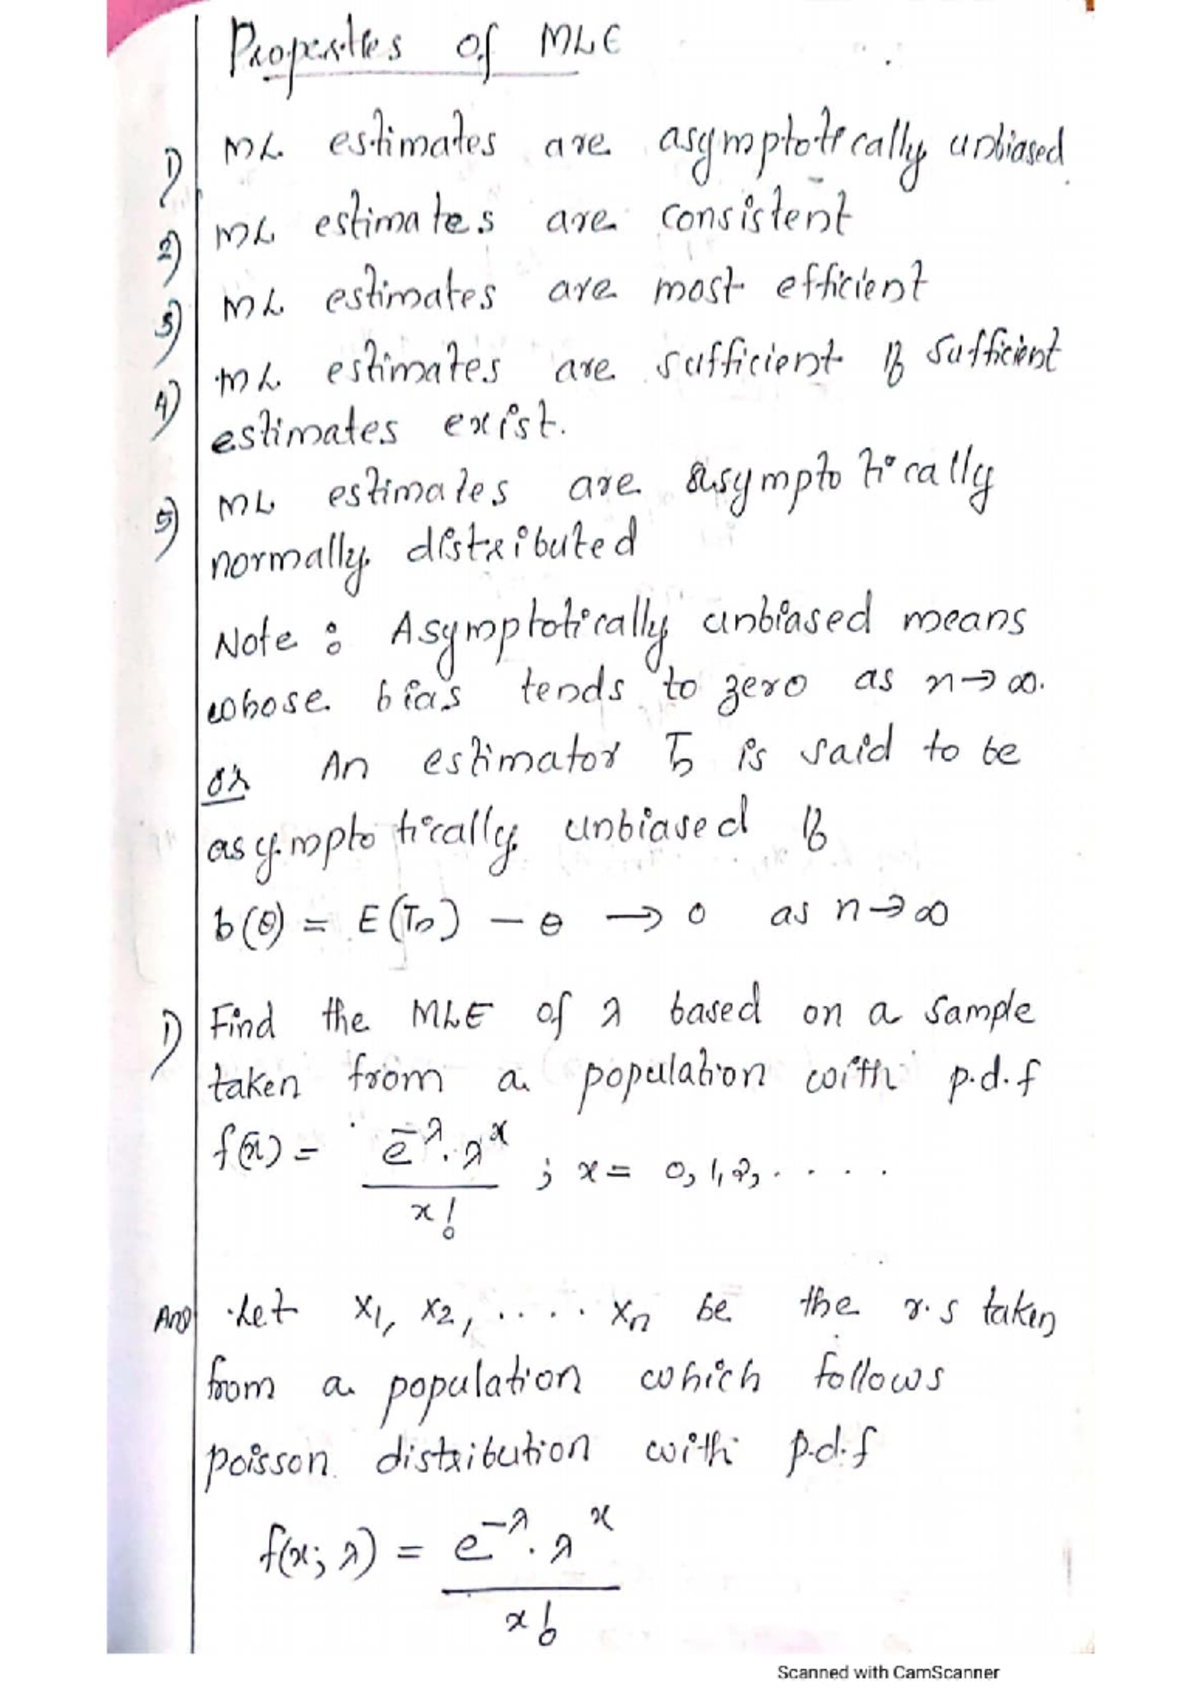 Properties of MLE
1) ML estimates are asymptotically unbiased.
2) ML estimates are consistent
3) ML estimates are most efficient
4) ML estimates are sufficient if sufficient
estimates exist.
5) ML estimates are asymptotically
normally distributed
Note : Asymptotically unbiased means
whose bias tends to zero as n→∞.
or An estimator Tn is said to be
asymptotically unbiased if
b(θ) = E(Tn) − θ → 0 as n→∞
1) Find the MLE of λ based on a sample
taken from a population with p.d.f
f(x) = e^-λ . λ^x / x! ; x = 0, 1, 2, . . . .
Ans Let x1, x2, . . . . xn be the r.s taken
from a population which follows
poisson distribution with p.d.f
f(x; λ) = e^-λ . λ^x / x!
Scanned with CamScanner